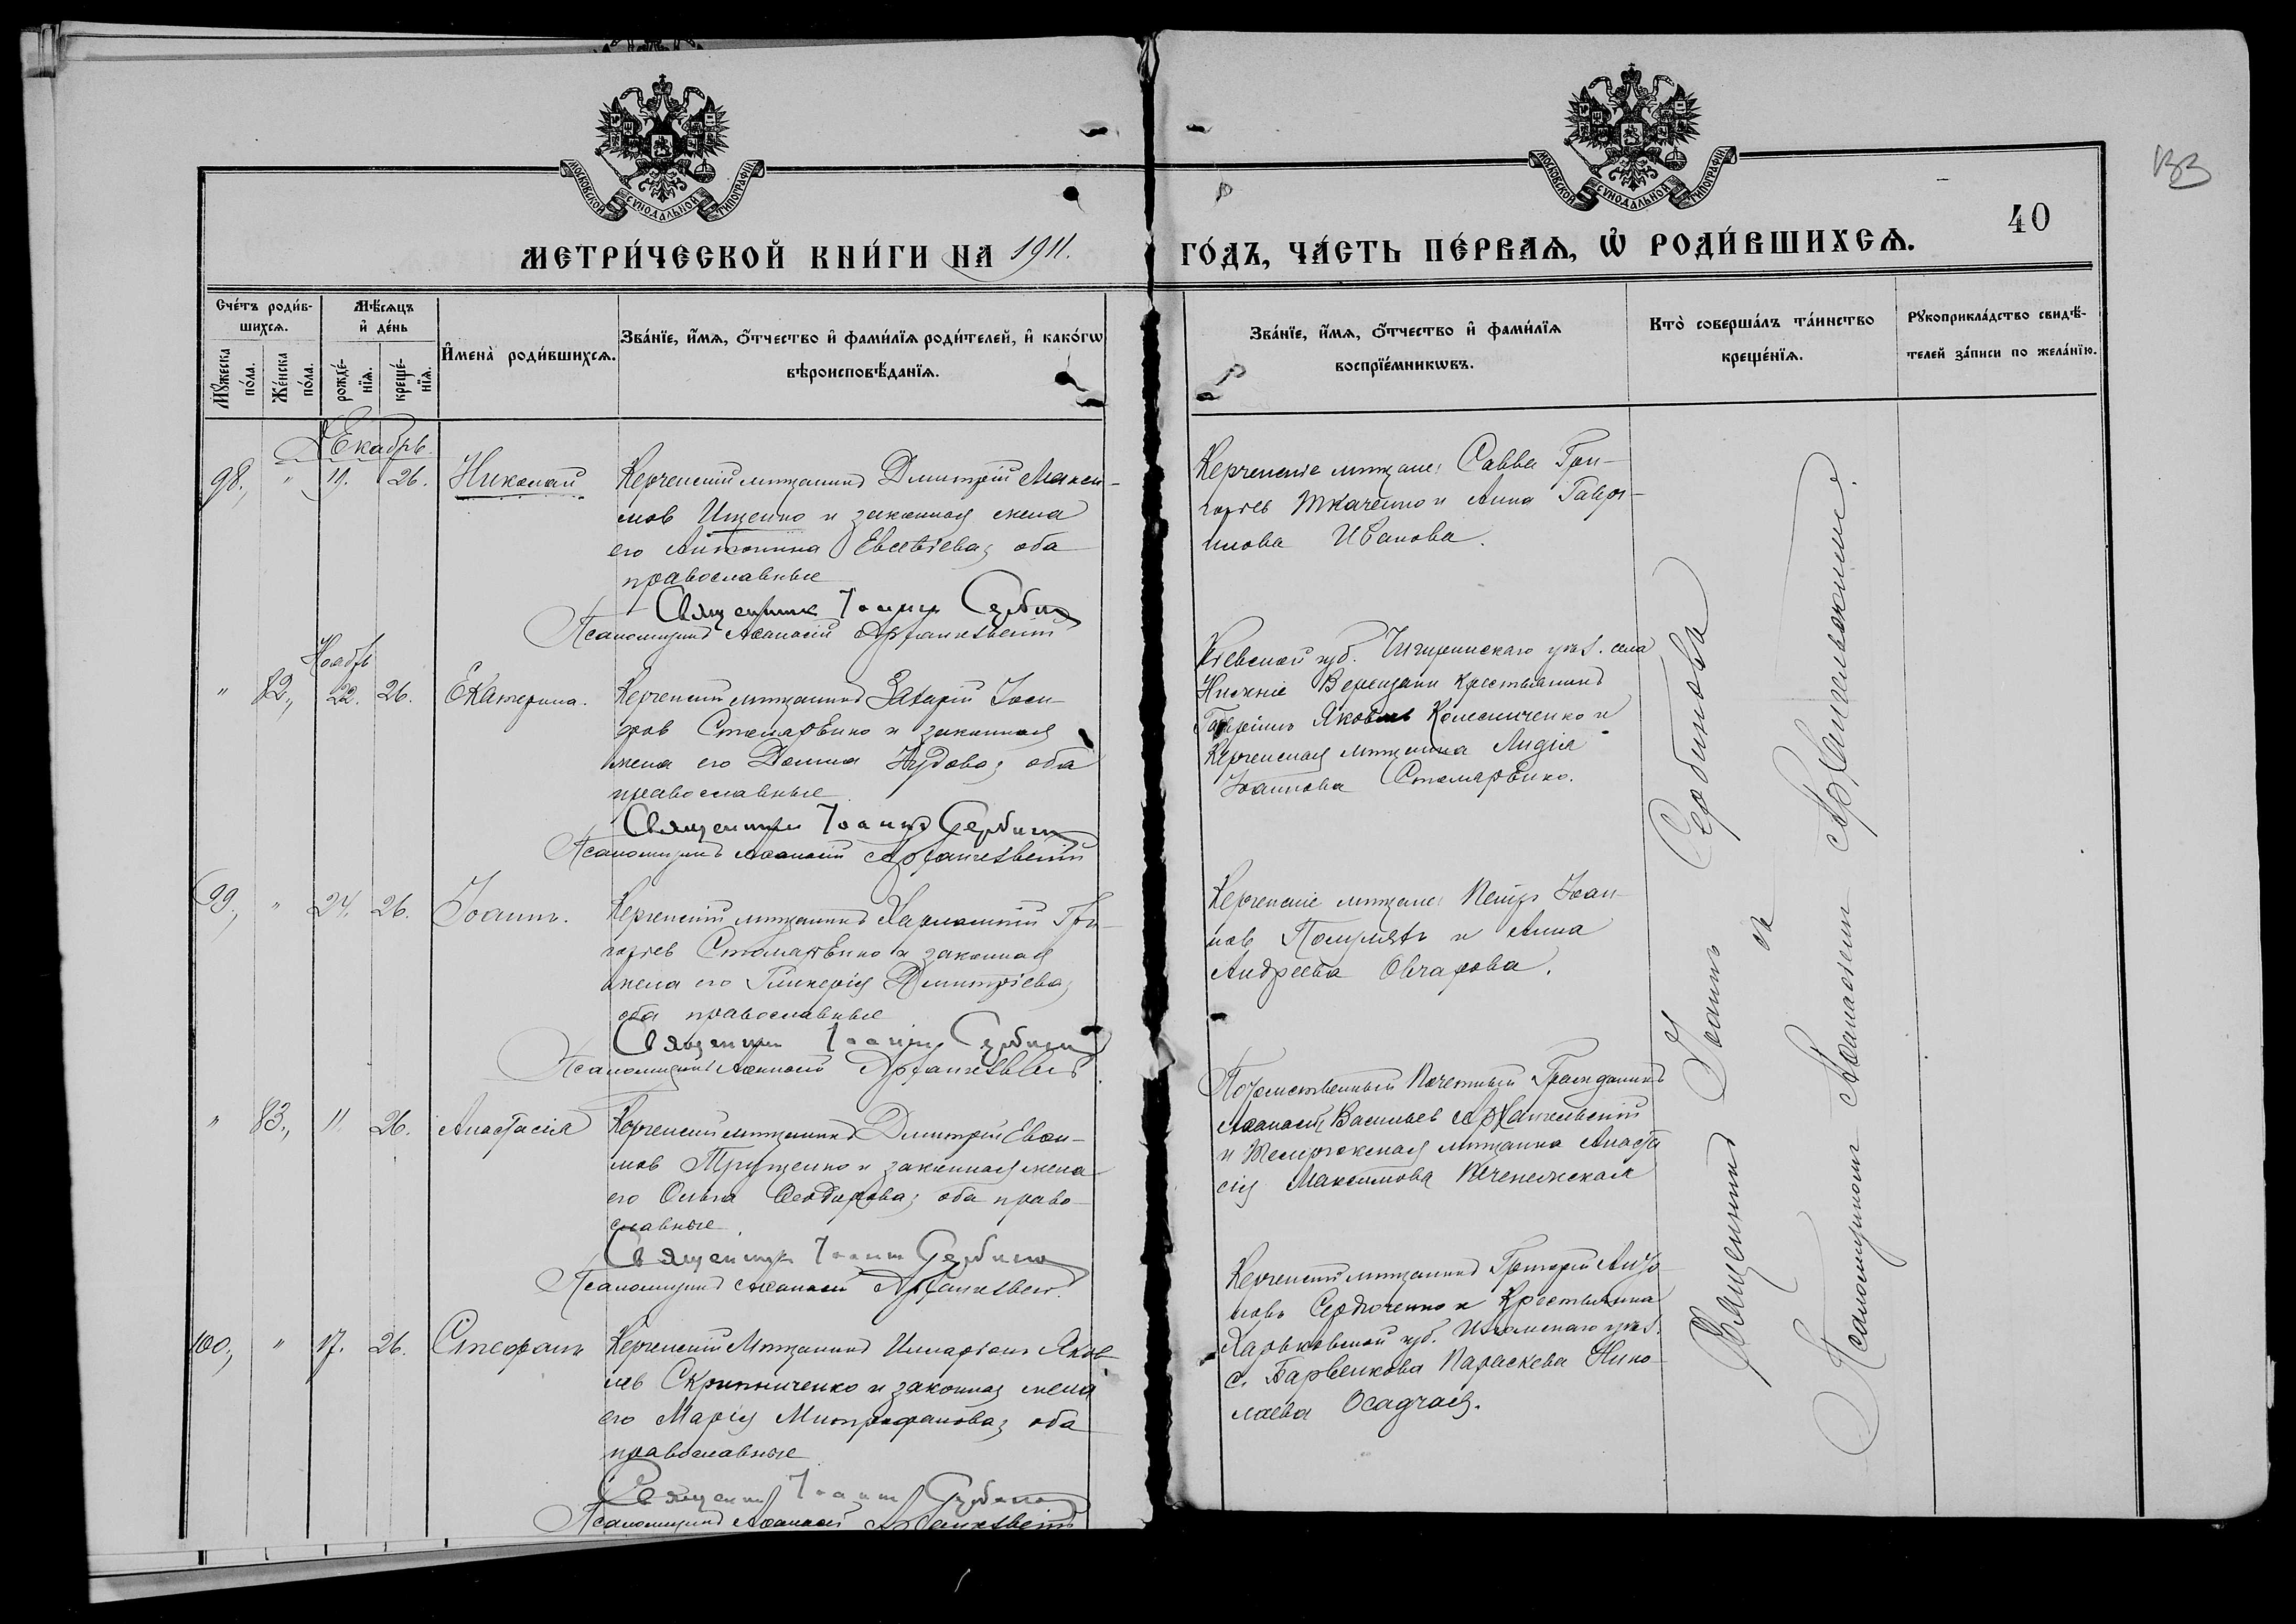 МОСКОВСКОЙ СѴНОДАЛЬНОЙ ТИПОГРАФІИ
МОСКОВСКОЙ СѴНОДАЛЬНОЙ ТИПОГРАФІИ
133
40
МЕТРИ́ЧЕСКОЙ КНИ́ГИ НА 1911. ГО́ДЪ, ЧА́СТЬ ПЕ́РВАѦ, Ѡ҆ РОДИ́ВШИХСѦ.
Сче́тъ роди́в-
шихсѧ.
Мꙋ́жеска по́ла.
Же́нска по́ла.
Мѣ́сѧцъ
и҆ де́нь
рожде́-
нїѧ.
креще́-
нїѧ.
И҆мена̀ роди́вшихсѧ.
Зва́нїе, и҆́мѧ, ѻ҆́тчество и҆ фами́лїѧ роди́телей, и҆ како́гѡ
вѣроисповѣ́данїѧ.
Зва́нїе, и҆́мѧ, ѻ҆́тчество и҆ фами́лїѧ
воспрїе́мникѡвъ.
Кто̀ соверша́лъ та́инство
креще́нїѧ.
Рꙋкоприкла́дство свидѣ́-
телей за́писи по жела́нїю.
Декабрь.
98., " 19. 26. Николай
Керченскій мѣщанинъ Дмитрій Макси-
мов Ищенко и законная жена
его Антонина Евсевіева; оба
православные
Священник Іоанн Сербинов
Псаломщикъ Аѳанасій Архангельскій
Керченскіе мѣщане: Савва Гри-
горіев Ткаченко и Анна Гаври-
илова Иванова.
Ноябрь
" 82., 22. 26. Екатерина.
Керченскій мѣщанинъ Захарій Іоси-
фов Столяренко и законная
жена его Домна; оба
православные
Священник Іоаннъ Сербинов
Псаломщикъ Аѳанасій Архангельскій
Кіевской губ. Чигиринскаго уѣз. села
Нижніе Верещаки крестьянинъ
Гавріилъ Яковлев Колесниченко и
Керченская мѣщанка Лидія
Іоаннова Столяренко.
99., " 24. 26. Іоаннъ.
Керченскій мѣщанинъ Харлампій Гри-
горіев Столяренко и законная
жена его Гликерія Дмитріева;
оба православные
Священник Іоанн Сербинов
Псаломщикъ Аѳанасій Архангельскій
Керченскіе мѣщане: Петръ Іоан-
нов и Анна
Андреева Овчарова.
" 83., 11. 26. Анастасія
Керченскій мѣщанинъ Дмитрій
мов Трущенко и законная жена
его Ольга Ѳеодорова; оба право-
славные.
Священник Іоанн Сербинов
Псаломщикъ Аѳанасій Архангельскій.
Потомственный Почетный Гражданинъ
Аѳанасій Васильев Архангельскій
и мѣщанка Анаста-
сія Максимова
100., " 17. 26. Стефанъ
Керченскій Мѣщанинъ Иларіонъ Яков-
лев Скрипниченко и законная жена
его Марія Митрофанова; оба
православные
Священник Іоанн Сербинов
Псаломщикъ Аѳанасій Архангельскій
Керченскій мѣщанинъ Григорій
Сердюченко и Крестьянка
Харьковской губ. Изюмскаго уѣз.
с. Барвенкова Параскева Нико-
лаева Осадчая.
Священникъ Іоаннъ Сербинова
съ
Псаломщикомъ Аѳанасіемъ Архангельскимъ.